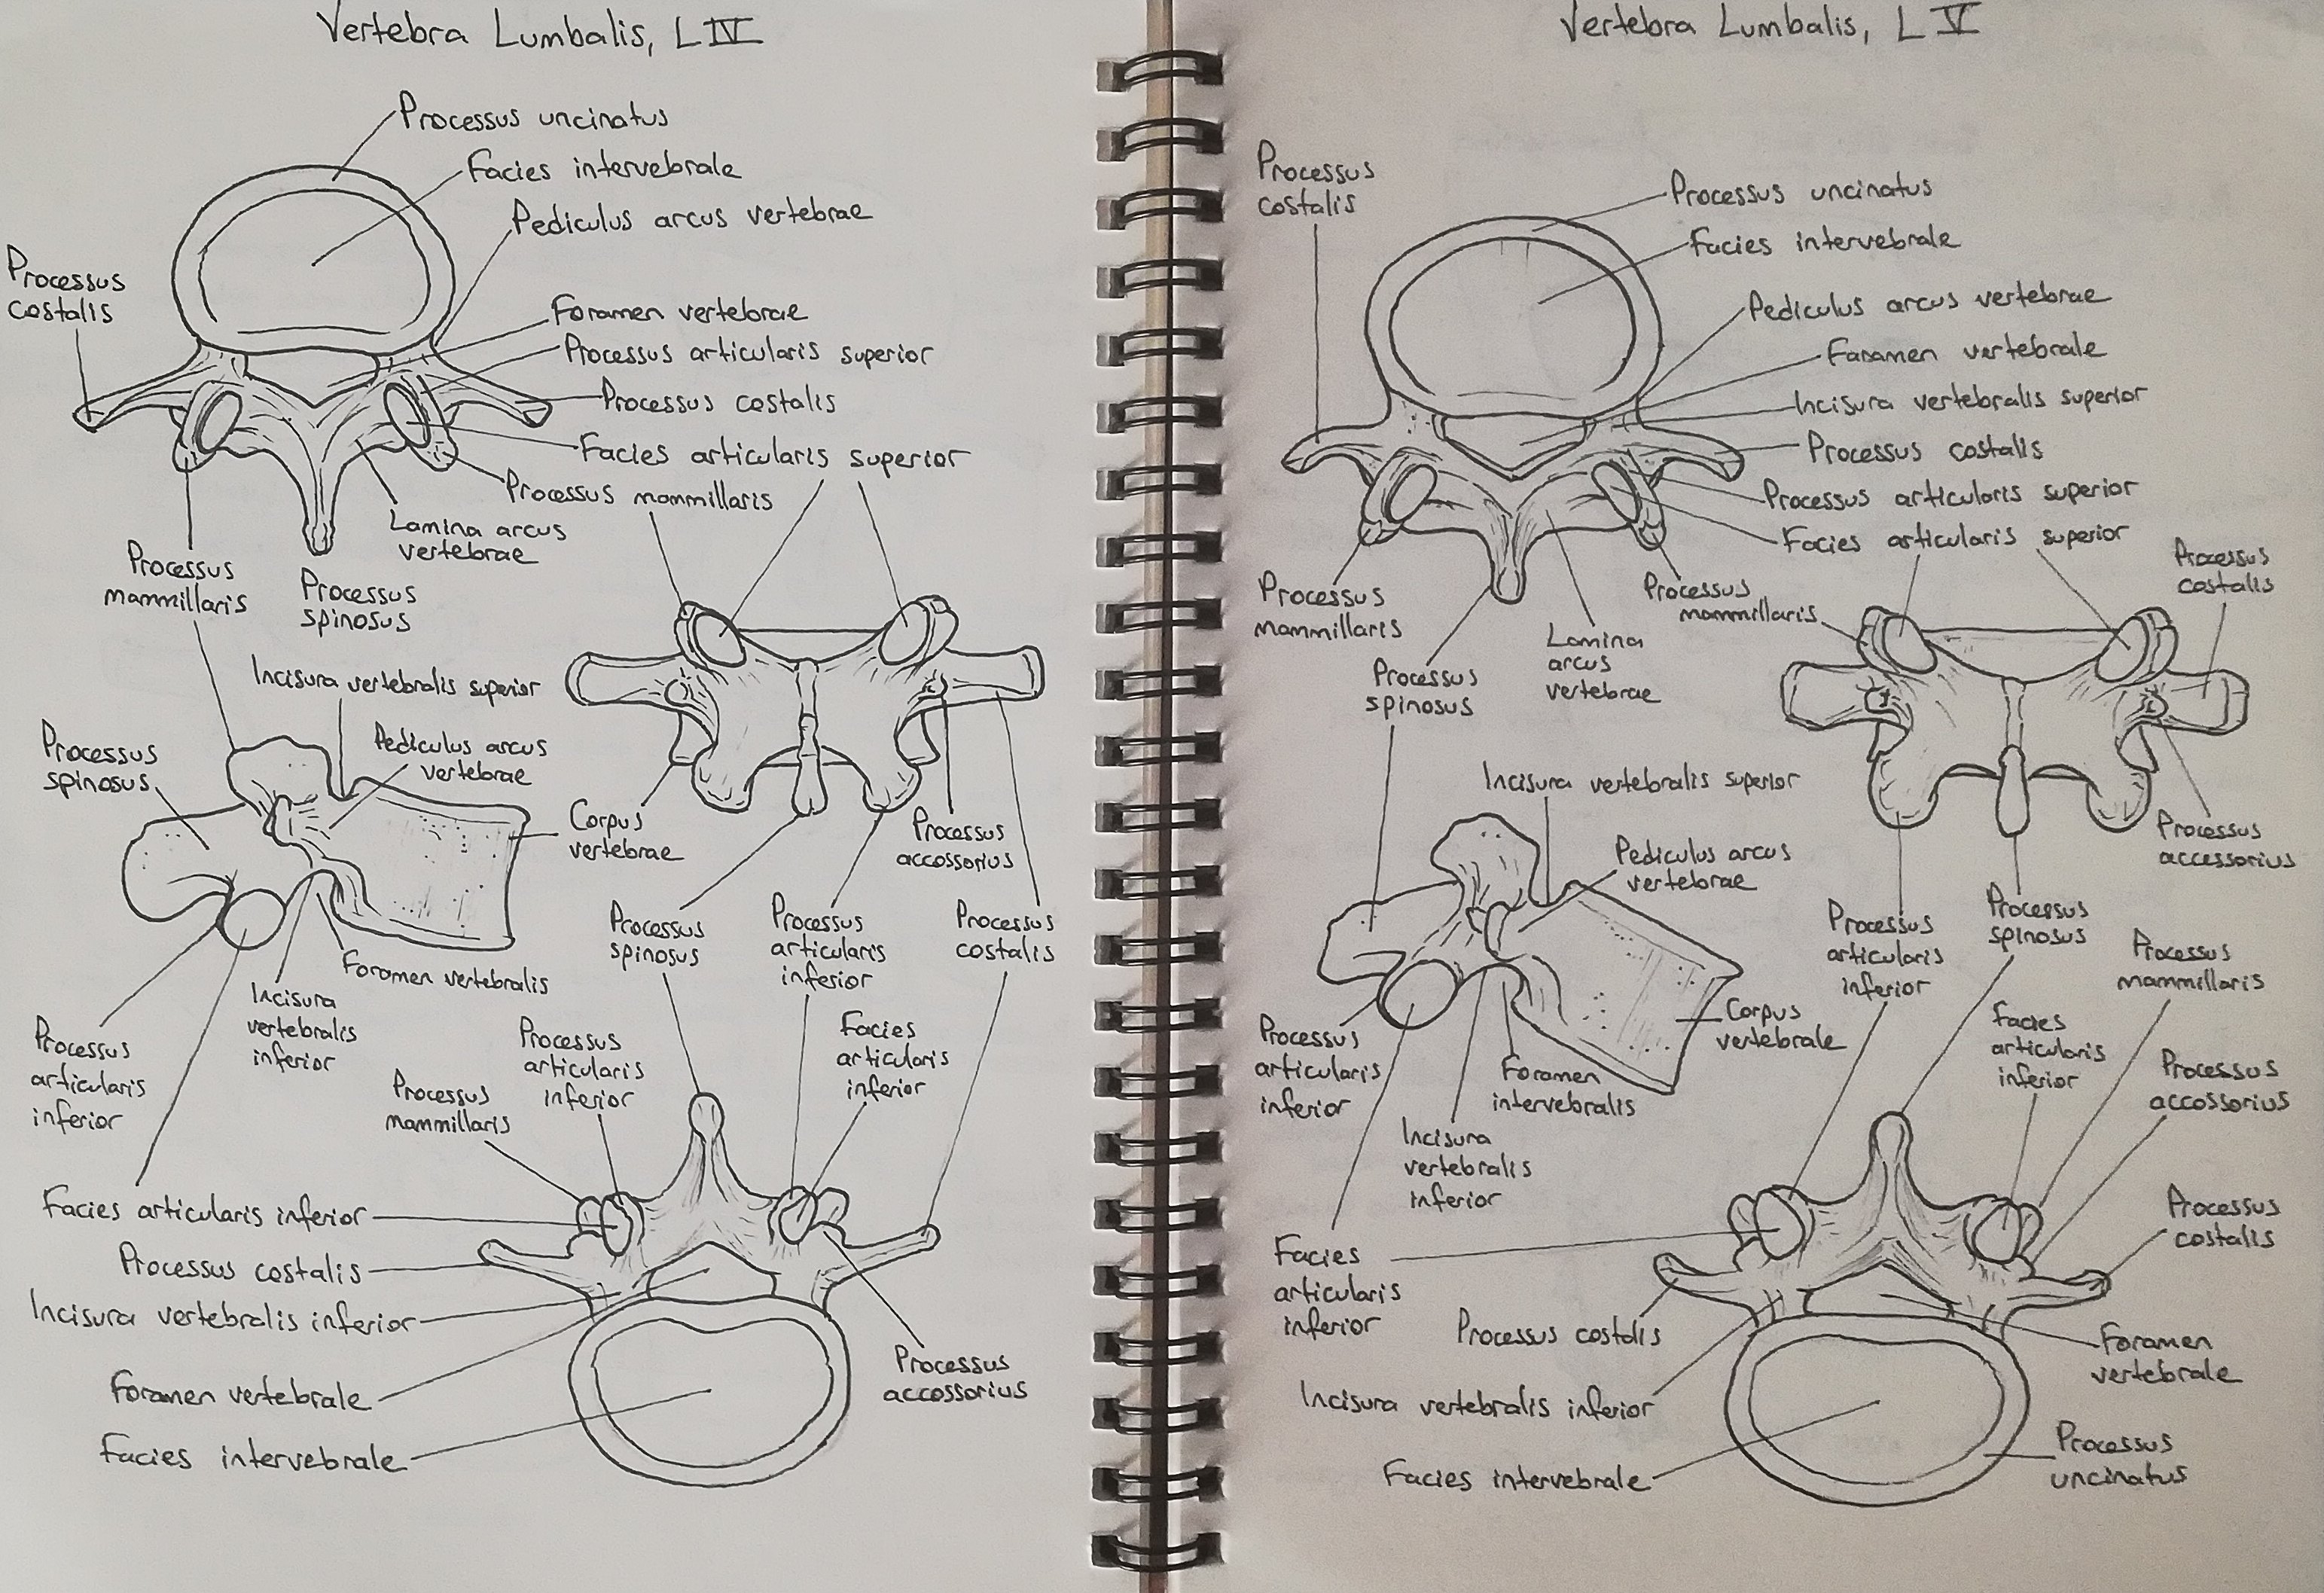 Vertebra Lumbalis, L IV
Processus uncinatus
Facies intervebrale
Pediculus arcus vertebrae
Processus
costalis
Foramen vertebrae
Processus articularis superior
Processus costalis
Facies articularis superior
Processus mammillaris
Lamina arcus
vertebrae
Processus
mammillaris
Processus
spinosus
Incisura vertebralis superior
Processus
spinosus
Pediculus arcus
vertebrae
Corpus
vertebrae
Processus
accossorius
Processus
spinosus
Processus
articularis
inferior
Processus
costalis
Foramen vertebralis
Incisura
vertebralis
inferior
Processus
articularis
inferior
Processus
articularis
inferior
Facies
articularis
inferior
Processus
mammillaris
Facies articularis inferior
Processus costalis
Incisura vertebralis inferior
Foramen vertebrale
Facies intervebrale
Processus
accossorius
Vertebra Lumbalis, L V
Processus
costalis
Processus uncinatus
Facies intervebrale
Pediculus arcus vertebrae
Foramen vertebrale
Incisura vertebralis superior
Processus costalis
Processus articularis superior
Facies articularis superior
Processus
costalis
Processus
mammillaris
Processus
mammillaris
Lamina
arcus
vertebrae
Processus
spinosus
Incisura vertebralis superior
Pediculus arcus
vertebrae
Processus
accessorius
Processus
articularis
inferior
Processus
spinosus
Processus
mammillaris
Corpus
vertebrale
Facies
articularis
inferior
Processus
accossorius
Processus
articularis
inferior
Foramen
intervebralis
Incisura
vertebralis
inferior
Processus
costalis
Facies
articularis
inferior
Processus costalis
Foramen
vertebrale
Incisura vertebralis inferior
Facies intervebrale
Processus
uncinatus